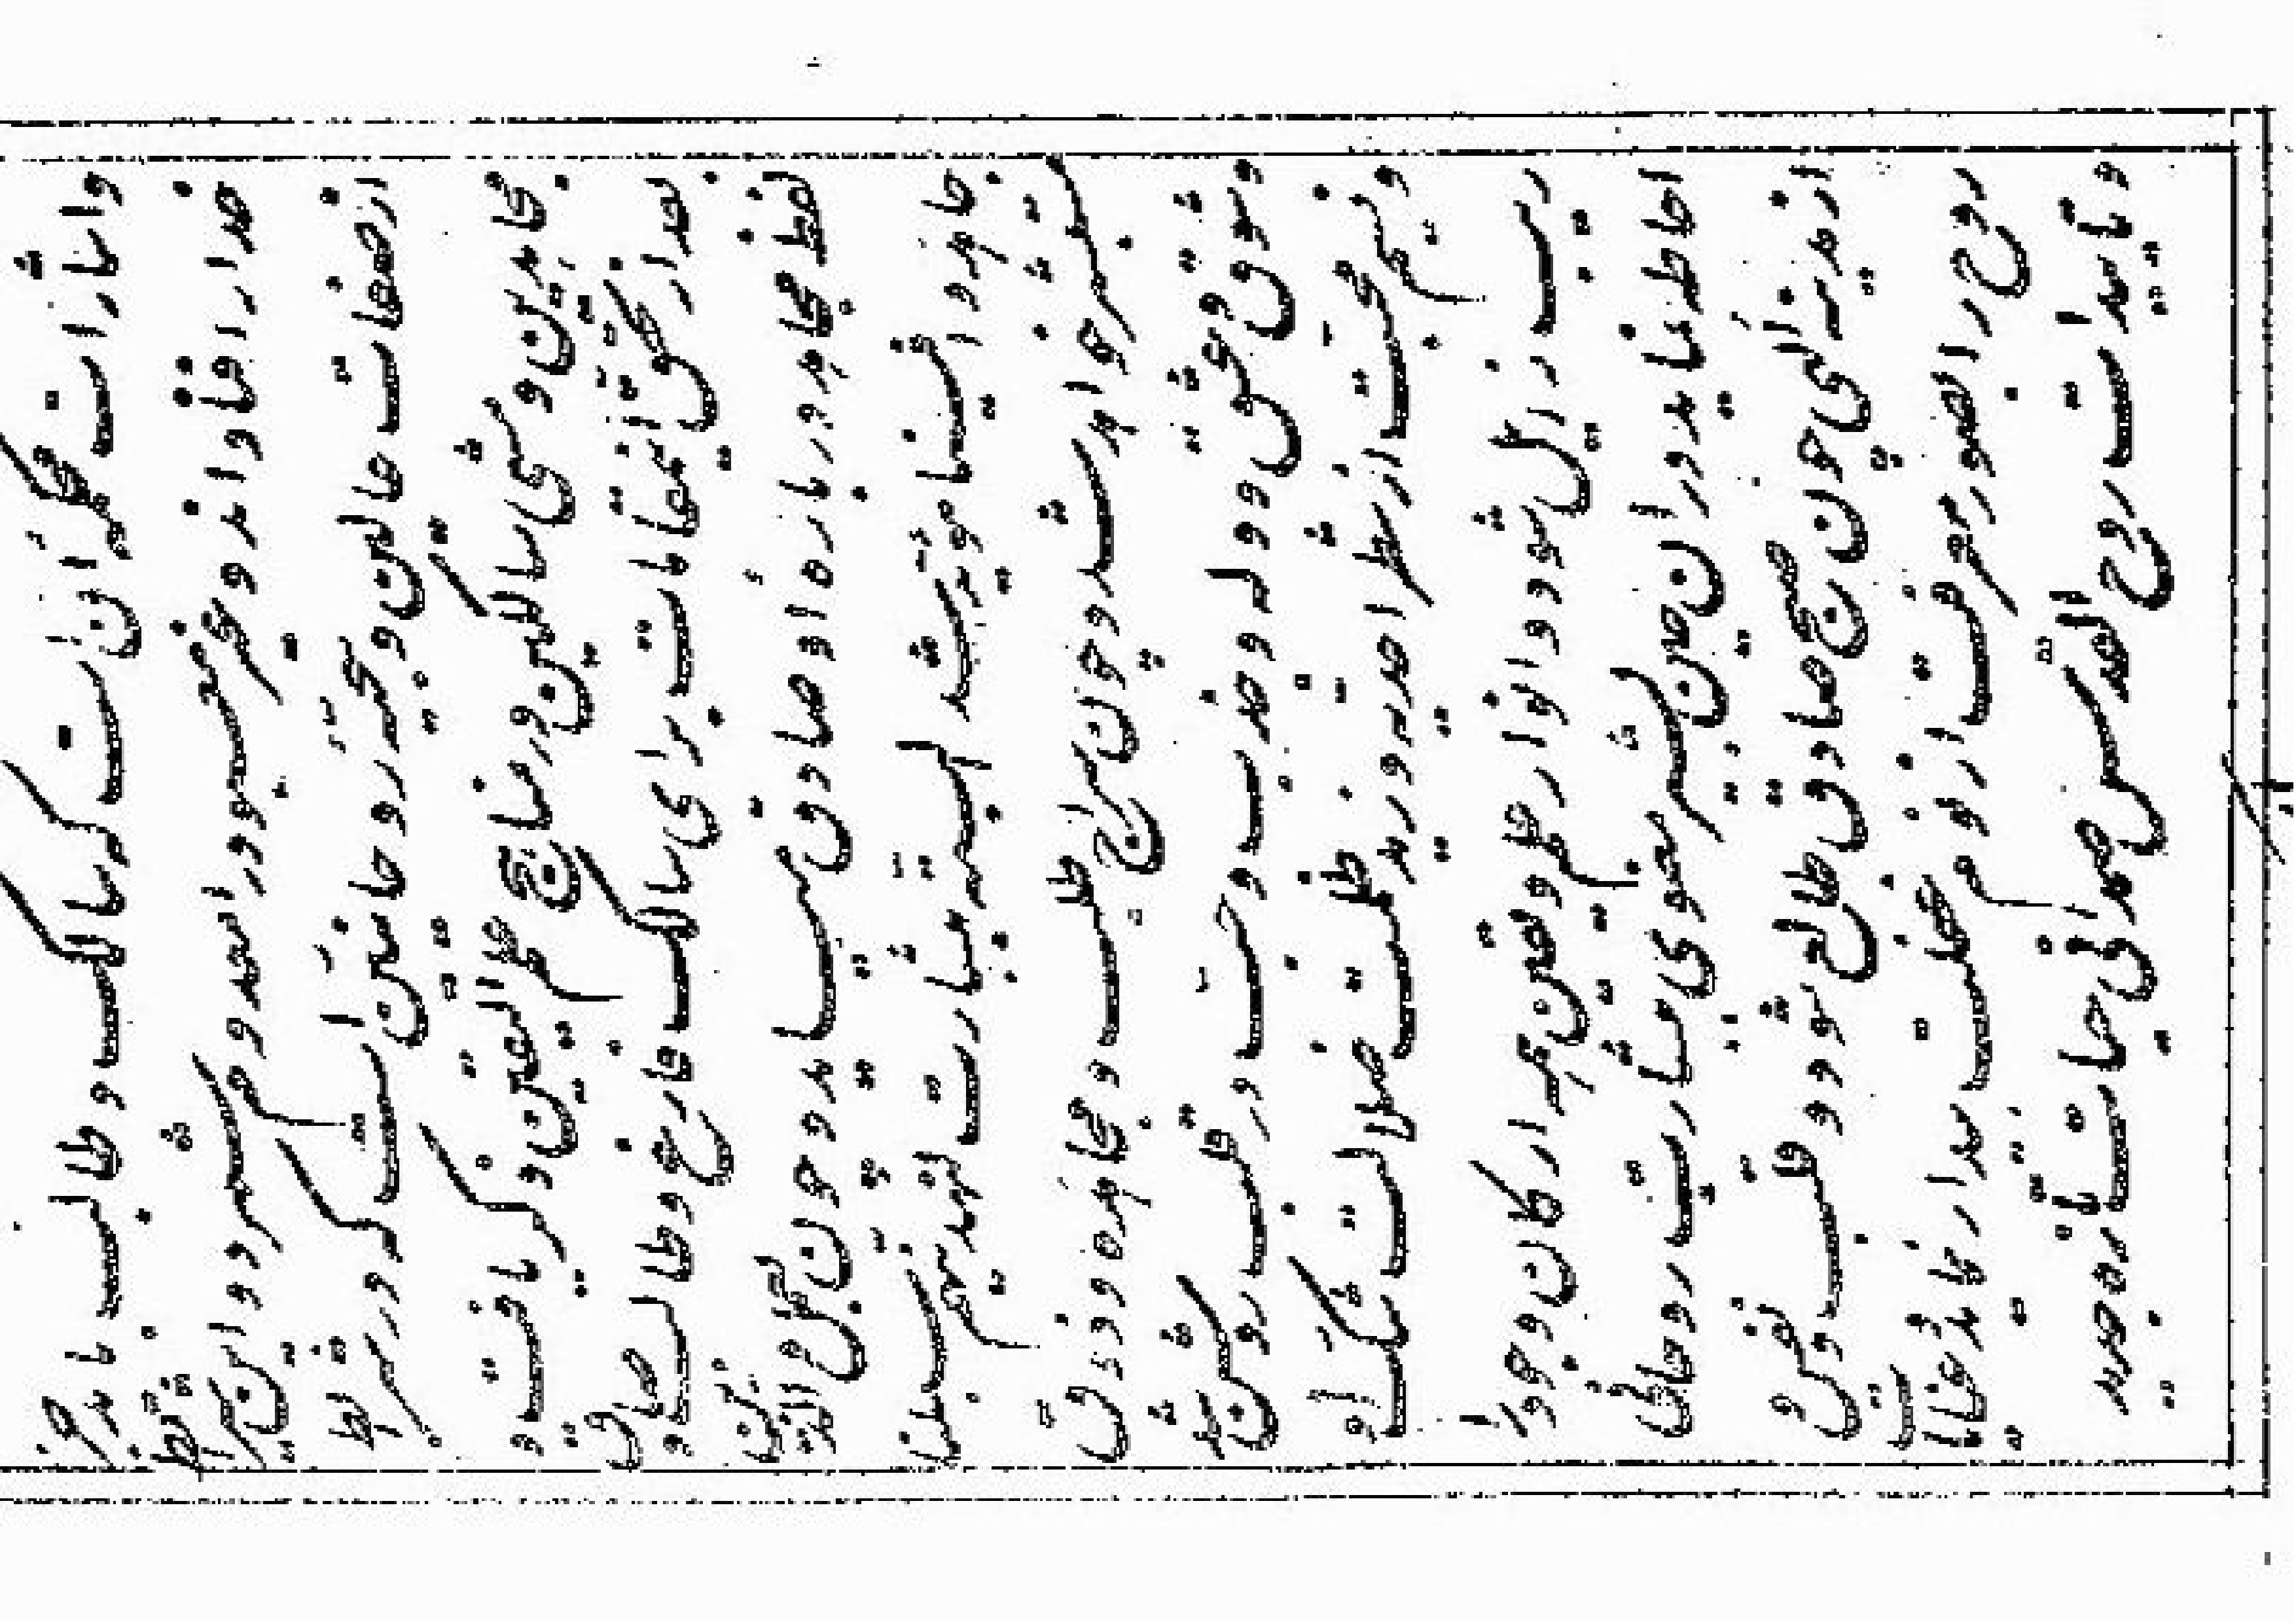 این است که سالک و طالب باید جز
خدا را فنا داند و غیر معبود را معدوم شمرد و این شرایط
از صفات عالین و سجیه روحانیین است که در شرایط
مجاهدین و مشی سالکین در مناهج علم الیقین ذکر یافت و
بعد از تحقق این مقامات برای سالک فارغ و طالب صادق
لفظ مجاهد درباره او صادق میآید و چون بعمل و الذین
جاهدوا فینا مؤید شد البته ببشارت لنهدینهم سبلنا
مستبشر خواهد شد و چون سراج طلب و مجاهده و ذوق
و شوق و عشق و وله و جذب و حب در قلب روشن شد
و نسیم محبت از شطر احدیه وزید ظلمت ضلالت شک و
ریب زایل شود و انوار علم و یقین همه ارکان وجود را
احاطه نماید در آن حین بشیر معنوی ببشارت روحانی
از مدینه الهی چون صبح صادق طالع شود و قلب و نفس و
روح را بصور معرفت از نوم غفلت بیدار نماید و عنایات
و تأییدات روح القدس صمدانی حیات تازه جدید